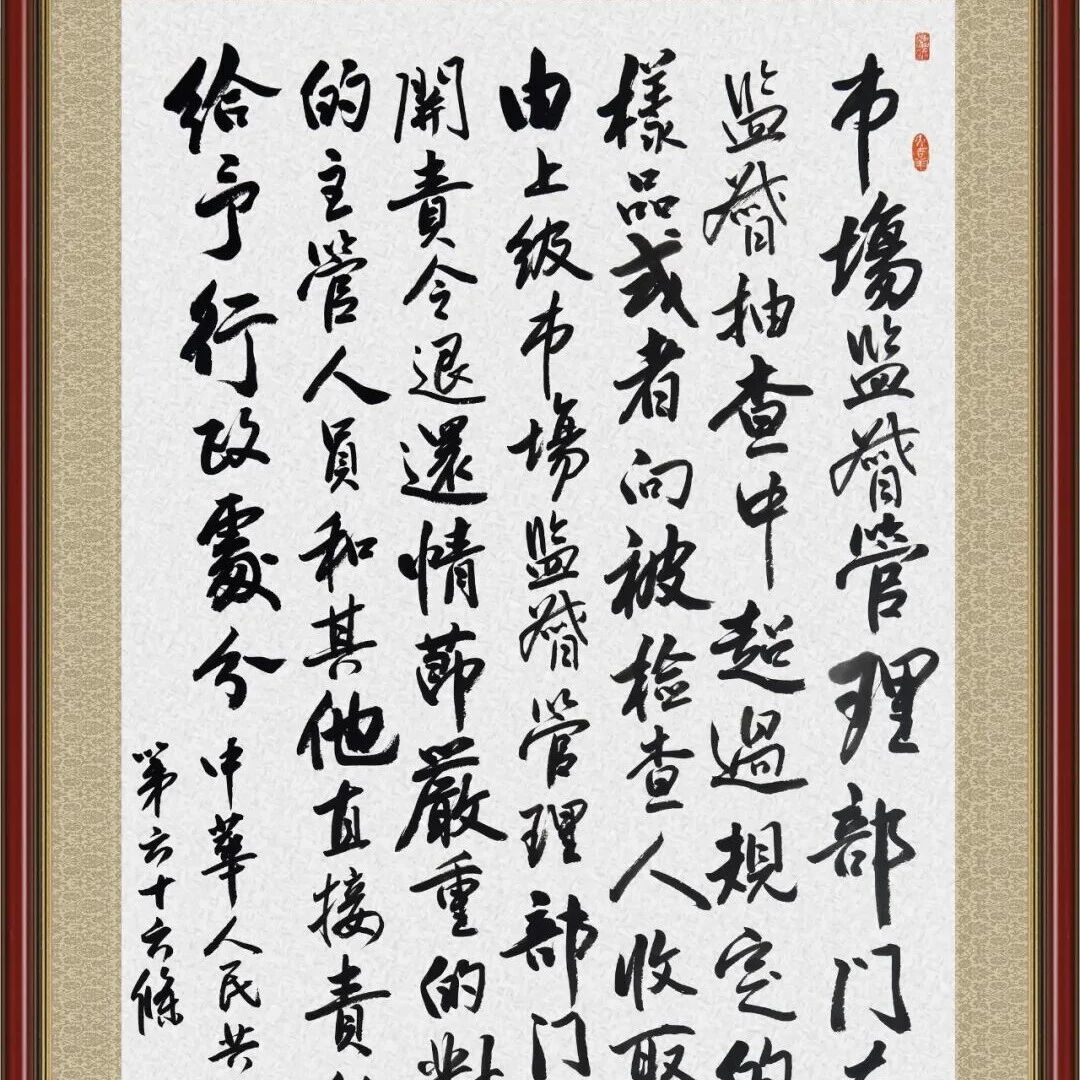 市場监督管理部门在
监督抽查中超過規定的
樣品或者向被检查人收取
由上级市場监督管理部门
関責令退還情節嚴重的對
的主管人員和其他直接責
给予行政處分 中華人民共
第六十六條